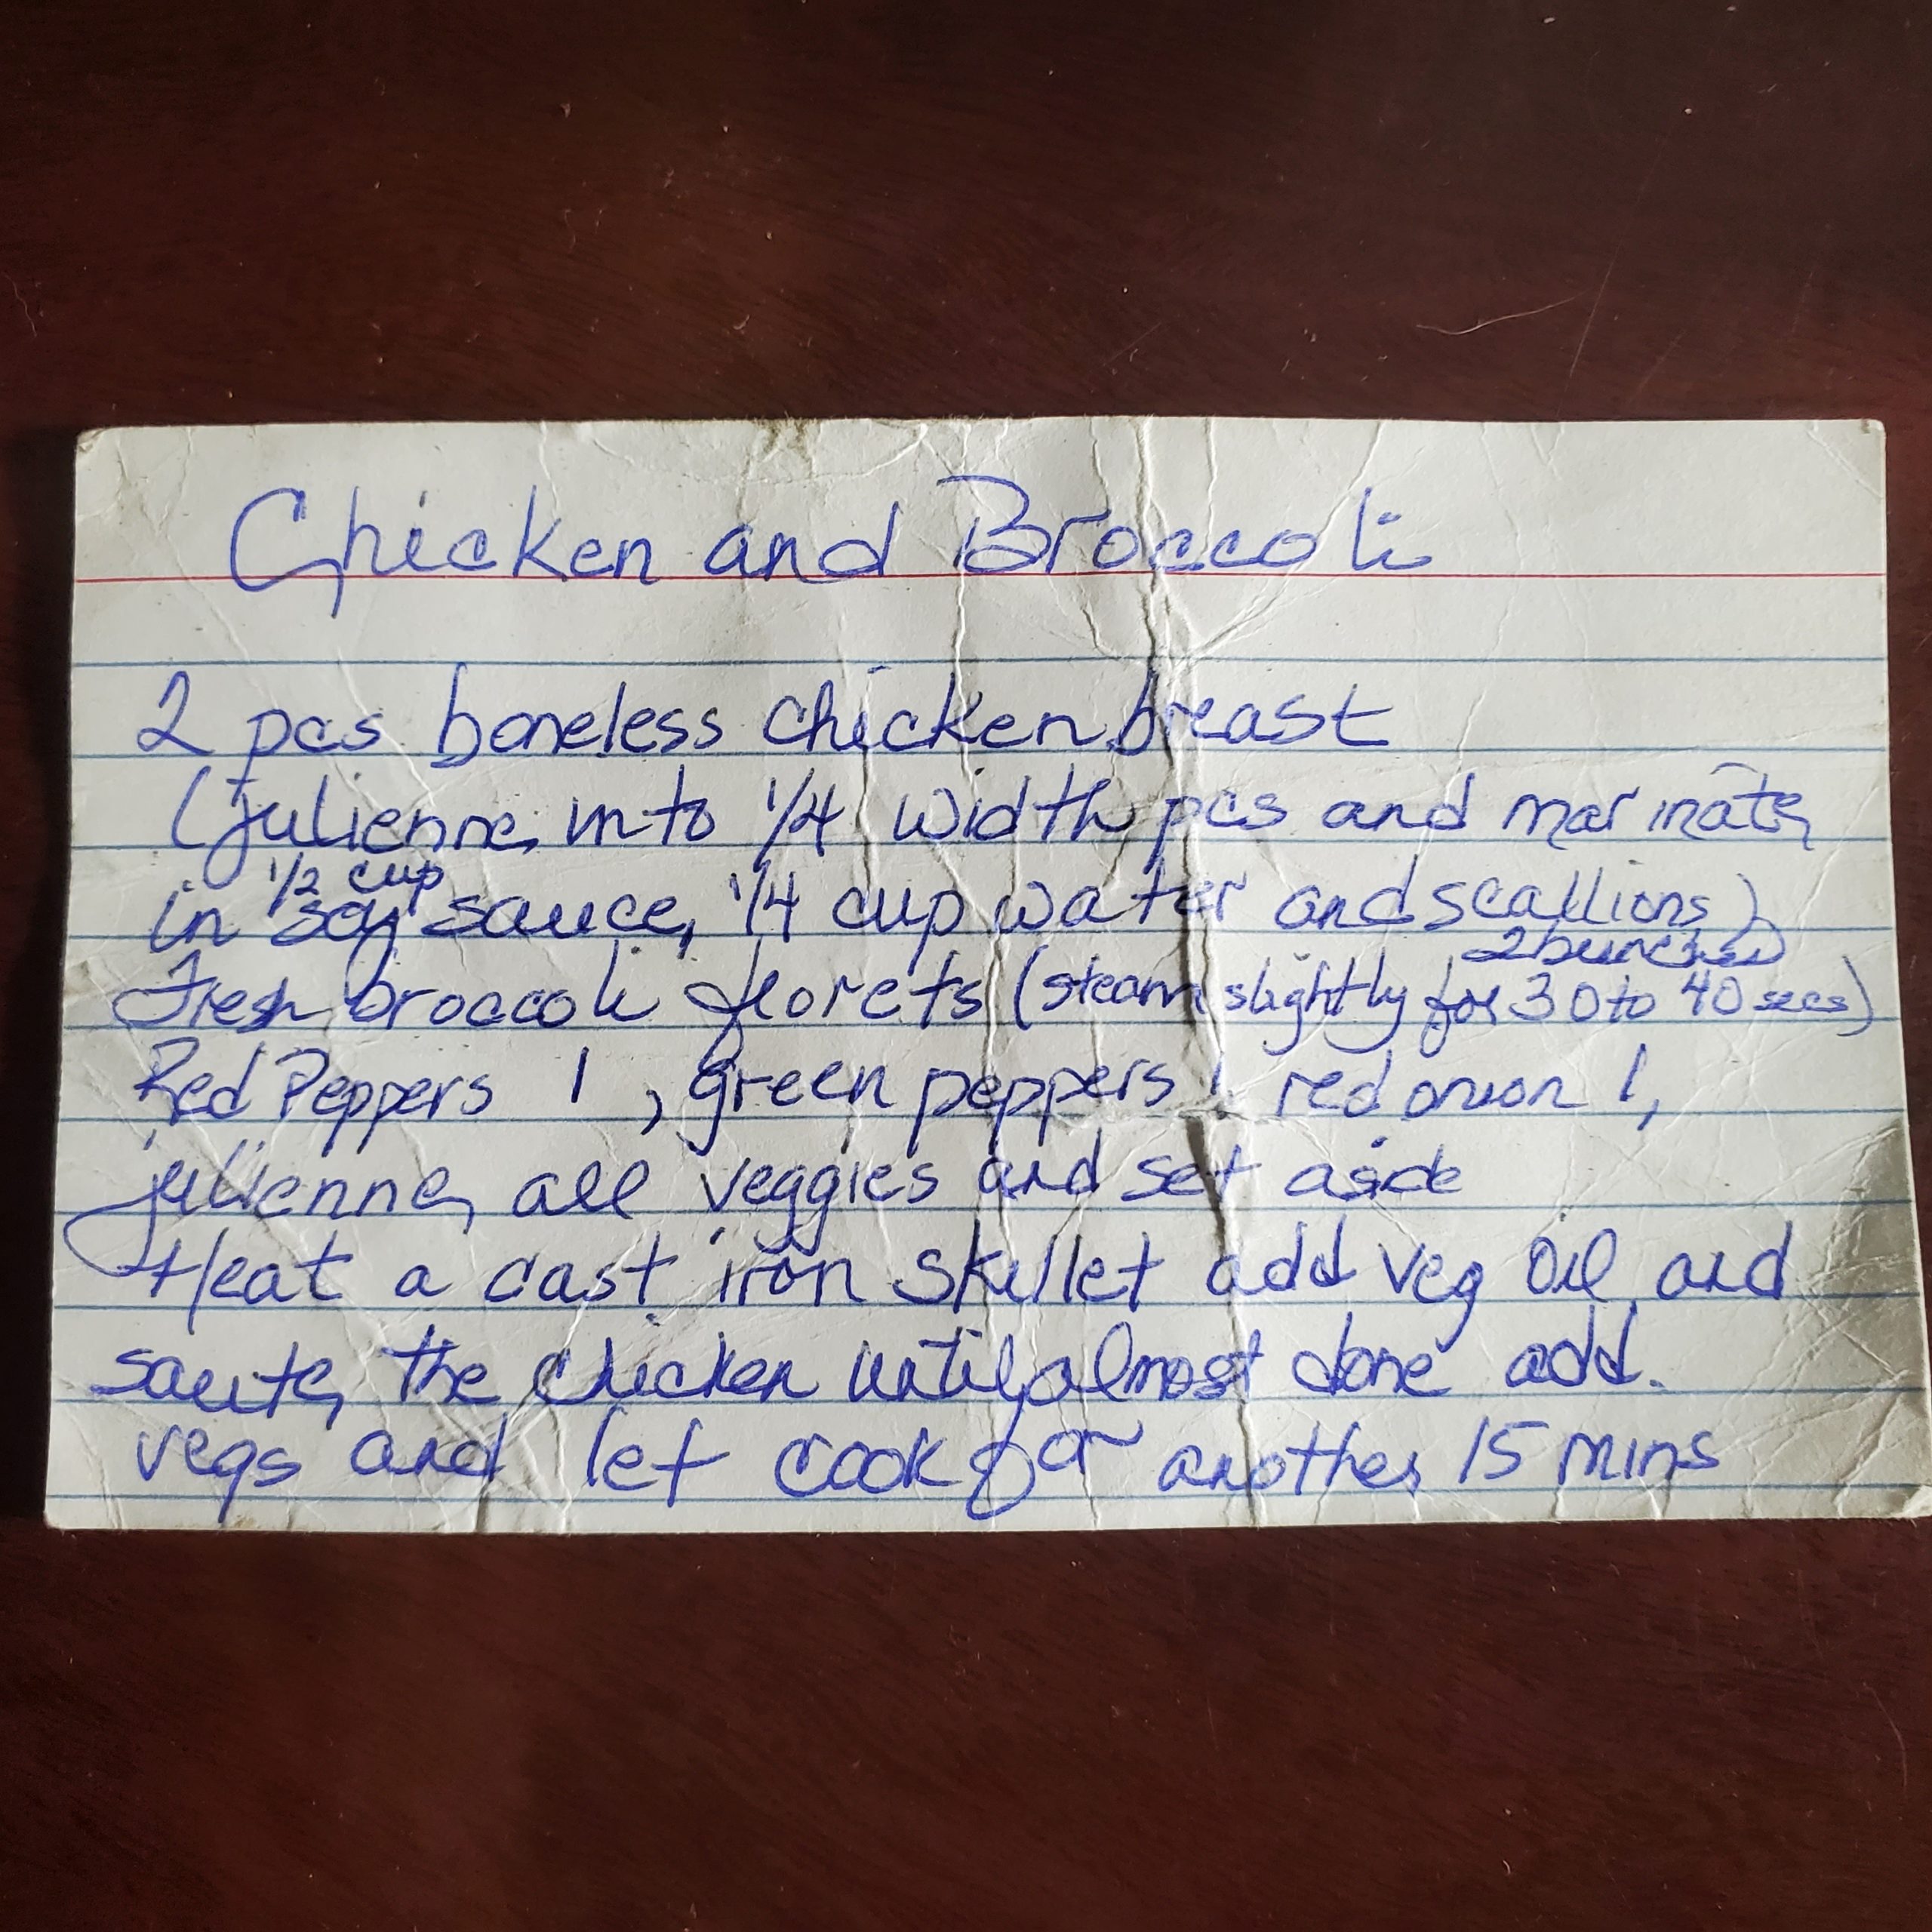 Chicken and Broccoli
2 pcs boneless chicken breast
(julienne into 1/4 width pcs and marinate
1/2 cup
in soy sauce, 1/4 cup water and scallions)
2 bunches
Fresh broccoli florets (steam slightly for 30 to 40 secs)
Red Peppers 1 , green peppers 1 red onion 1,
julienne all veggies and set aside
Heat a cast iron skillet add veg oil and
saute the chicken until almost done add.
vegs and let cook for another 15 mins